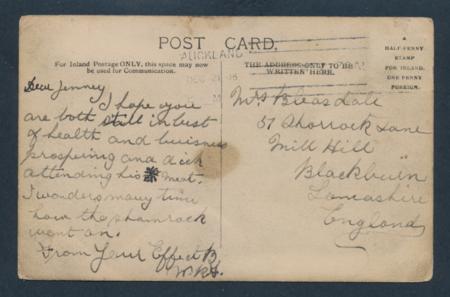 POST CARD.
A
HALF-PENNY
STAMP
FOR INLAND.
ONE PENNY
FOREIGN.
For Inland Postage ONLY, this space may now
be used for Communication.
THE ADDRESS ONLY TO BE
WRITTEN HERE.
AUCKLAND
DEC
Dear Jenney
I hope you
are both still in best
of health and buisness
prospering and dick
attending his meat.
I wonder many time
how the shamrock
went on.
From Your Effect B
Mrs Bleasdale
57 Shorrock Lane
Mill Hill
Blackburn
Lancashire
England